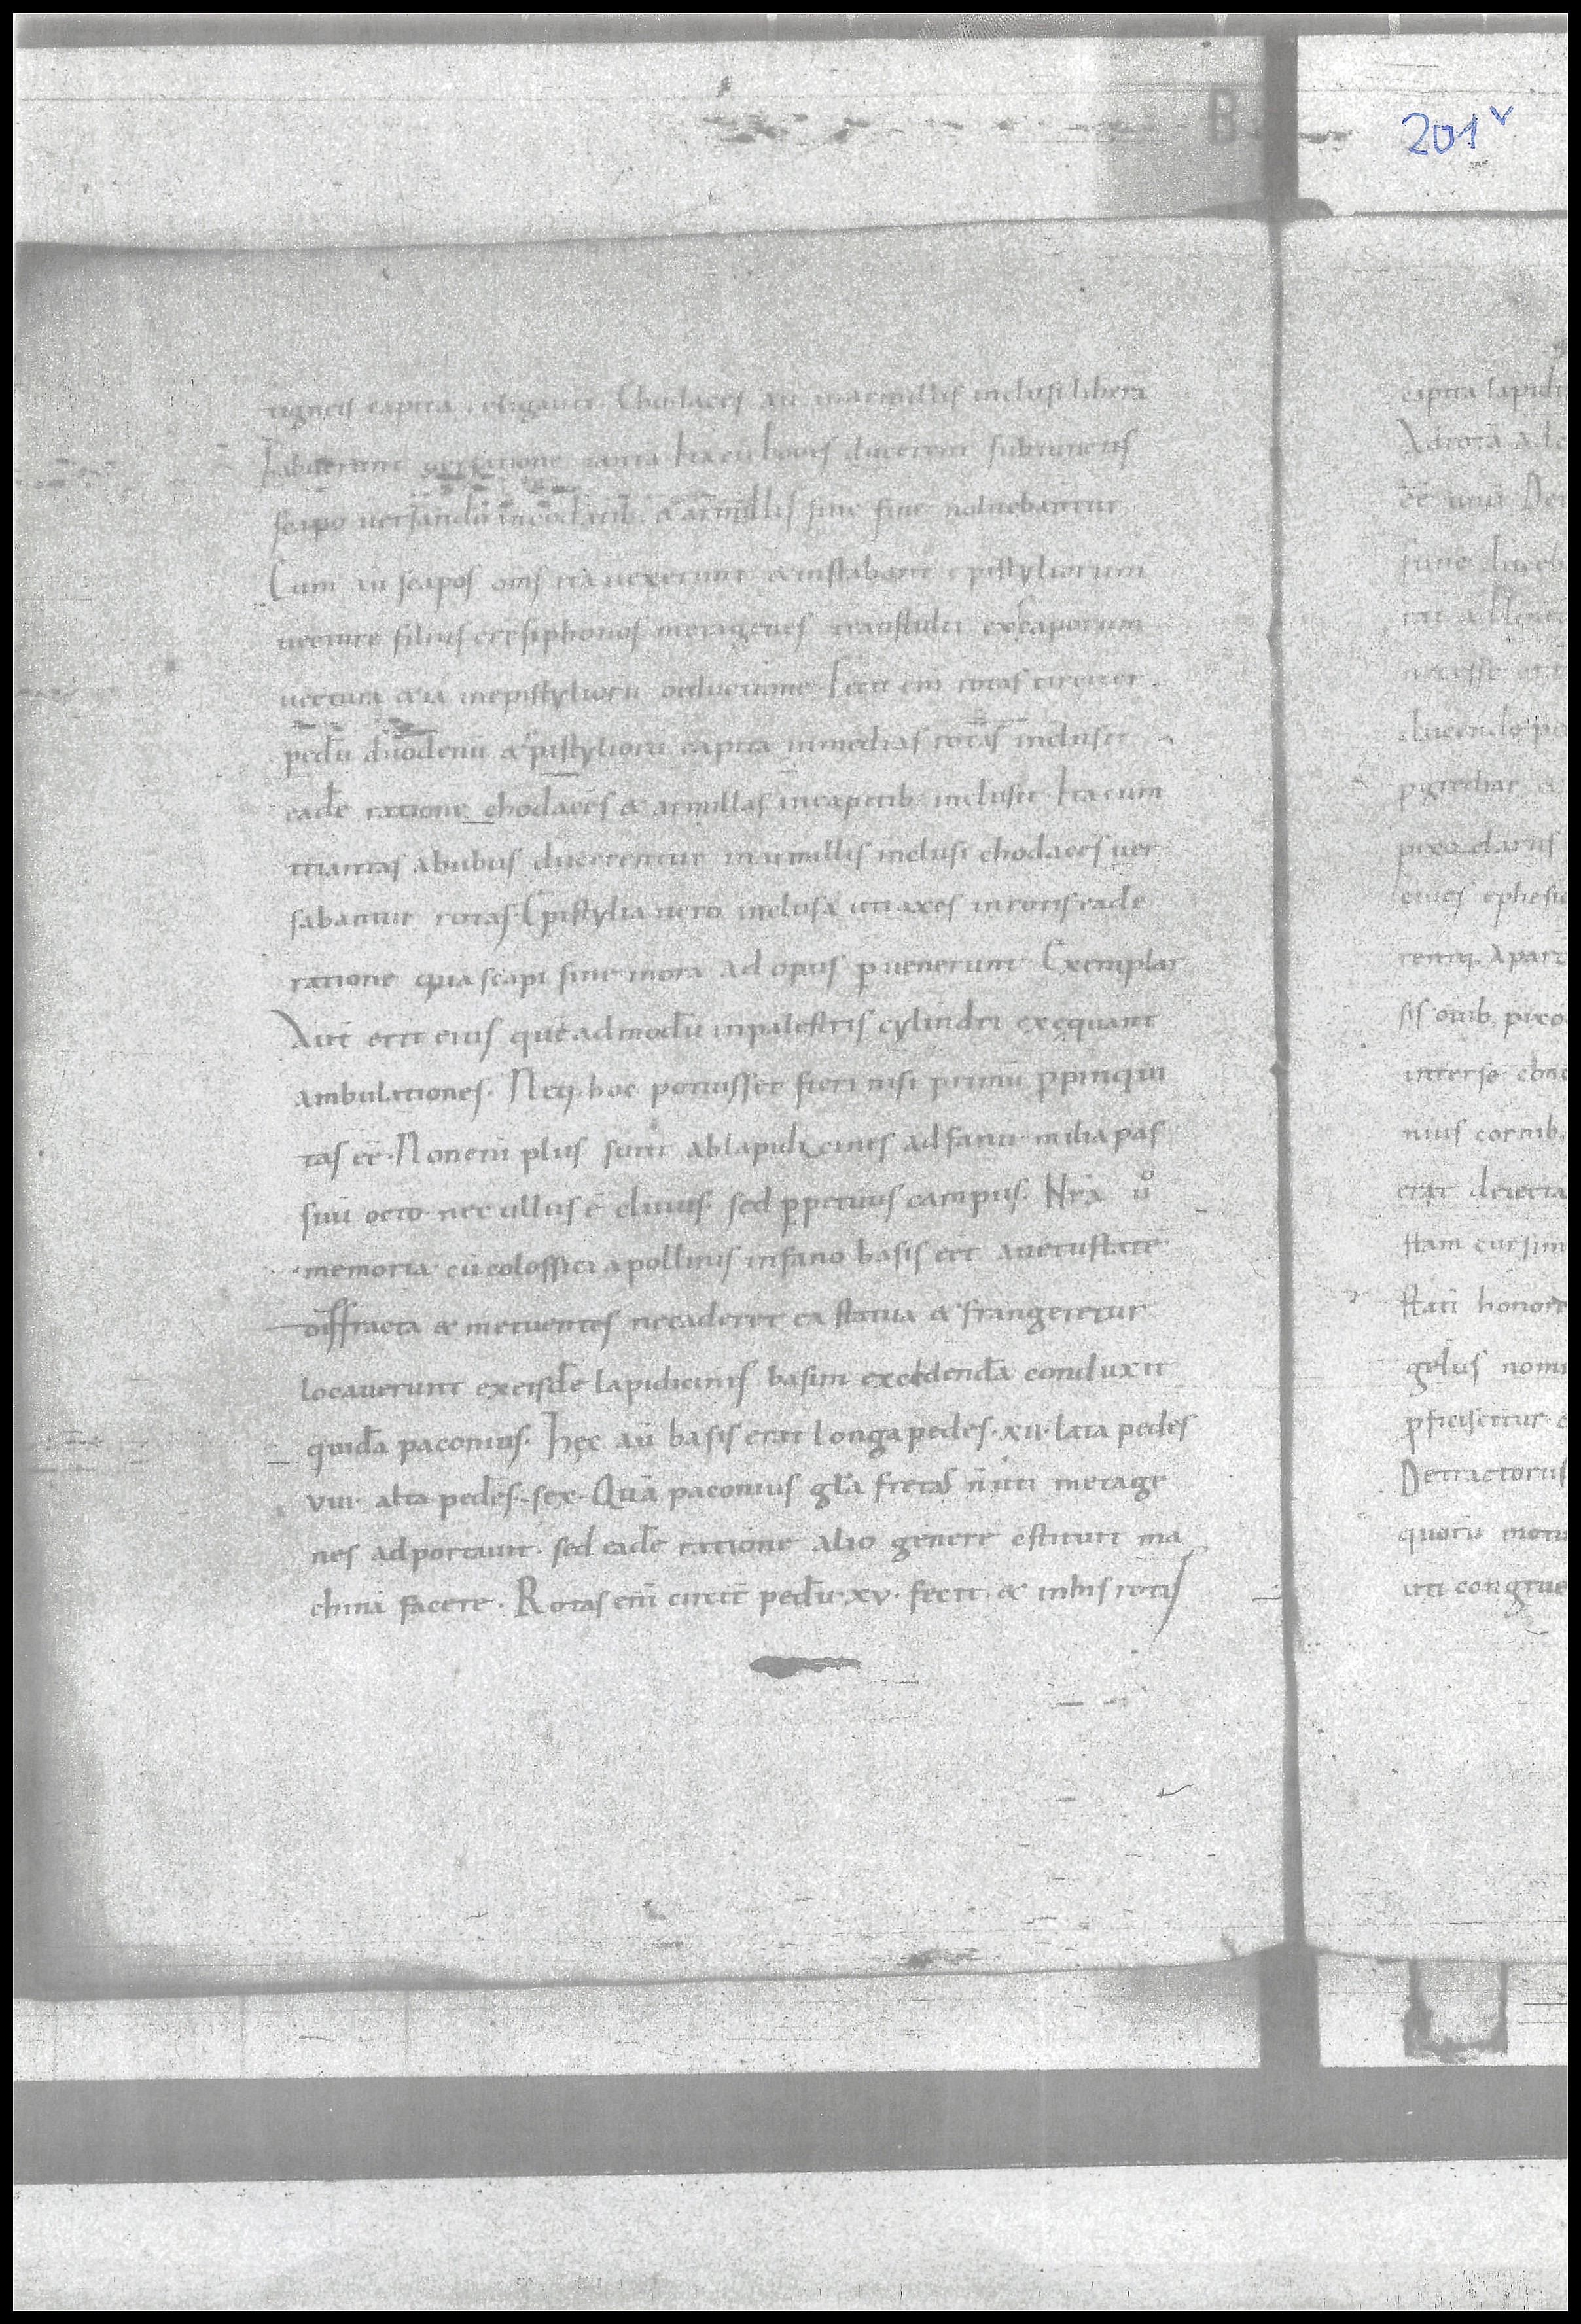 B
201v
tigneis capita religavit. Chodaces au in armillis inclusi liberā
habuerunt versatione tantā Ita cū boves ducerent subiunctis
scapo versandū in codacib. & armillis sine fine volvebantur
Cum aū scapos om̄s ita vexerunt & instabant epistyliorum
vecture filius cresiphonos metagenes transtulit ex scaporum
vectura & iā in epistyliorū deductione. Fecit em̄ rotas circiter
pedū duodenū & epistyliorū capita in medias rotas inclusit
eadē ratione chodaces & armillas in capitib. inclusit Ita cum
trientes a bubus ducerentur in armillis inclusi chodaces ver
sabantur rotas. Epistylia vero inclusa uti axes in rotis eadē
ratione qua scapi sine mora ad opus pvenerunt Exemplar
Aut̄ erit eius quēadmodū in palestris cylindri exęquant
ambulationes. Neq. hoc potuisset fieri nisi primū ppinqui
tas eēt. Non enī plus sunt ab lapidicines ad fanū milia pas
suū octo. nec ullus ē clivus. sed ppetuus campus. Nrā ů
memoria cū colossici apollinis in fano basis eēt a vetustate
diffracta & metuentes ne caderet ea statua & frangeretur
locaverunt ex eisdē lapidicinis basim excidendā conduxit
quidā paconius. Hęc aū basis erat longa pedes. xii. lata pedes
viii. alta pedes. sex. Quā paconius gl̄a fretus n̄ uti metage
nes adportavit. sed eadē ratione alio genere cstituit ma
chinā facere. Rotas em̄ circit̄ pedū. xv. fecit. & in his rotis
capita lapidi
Ad rotā a de
eēt unū Dei
fune
rat
necesse erat
ducendo
pgrediar &
pixodarus
cives ephesi
rentq. A paro
sis ovib. pixo
inter se
nius cornib.
erat deiecta
stam cursim
stati honore
gelus nomi
pficiscitur
Detractorus
quorū motu
uti congrue